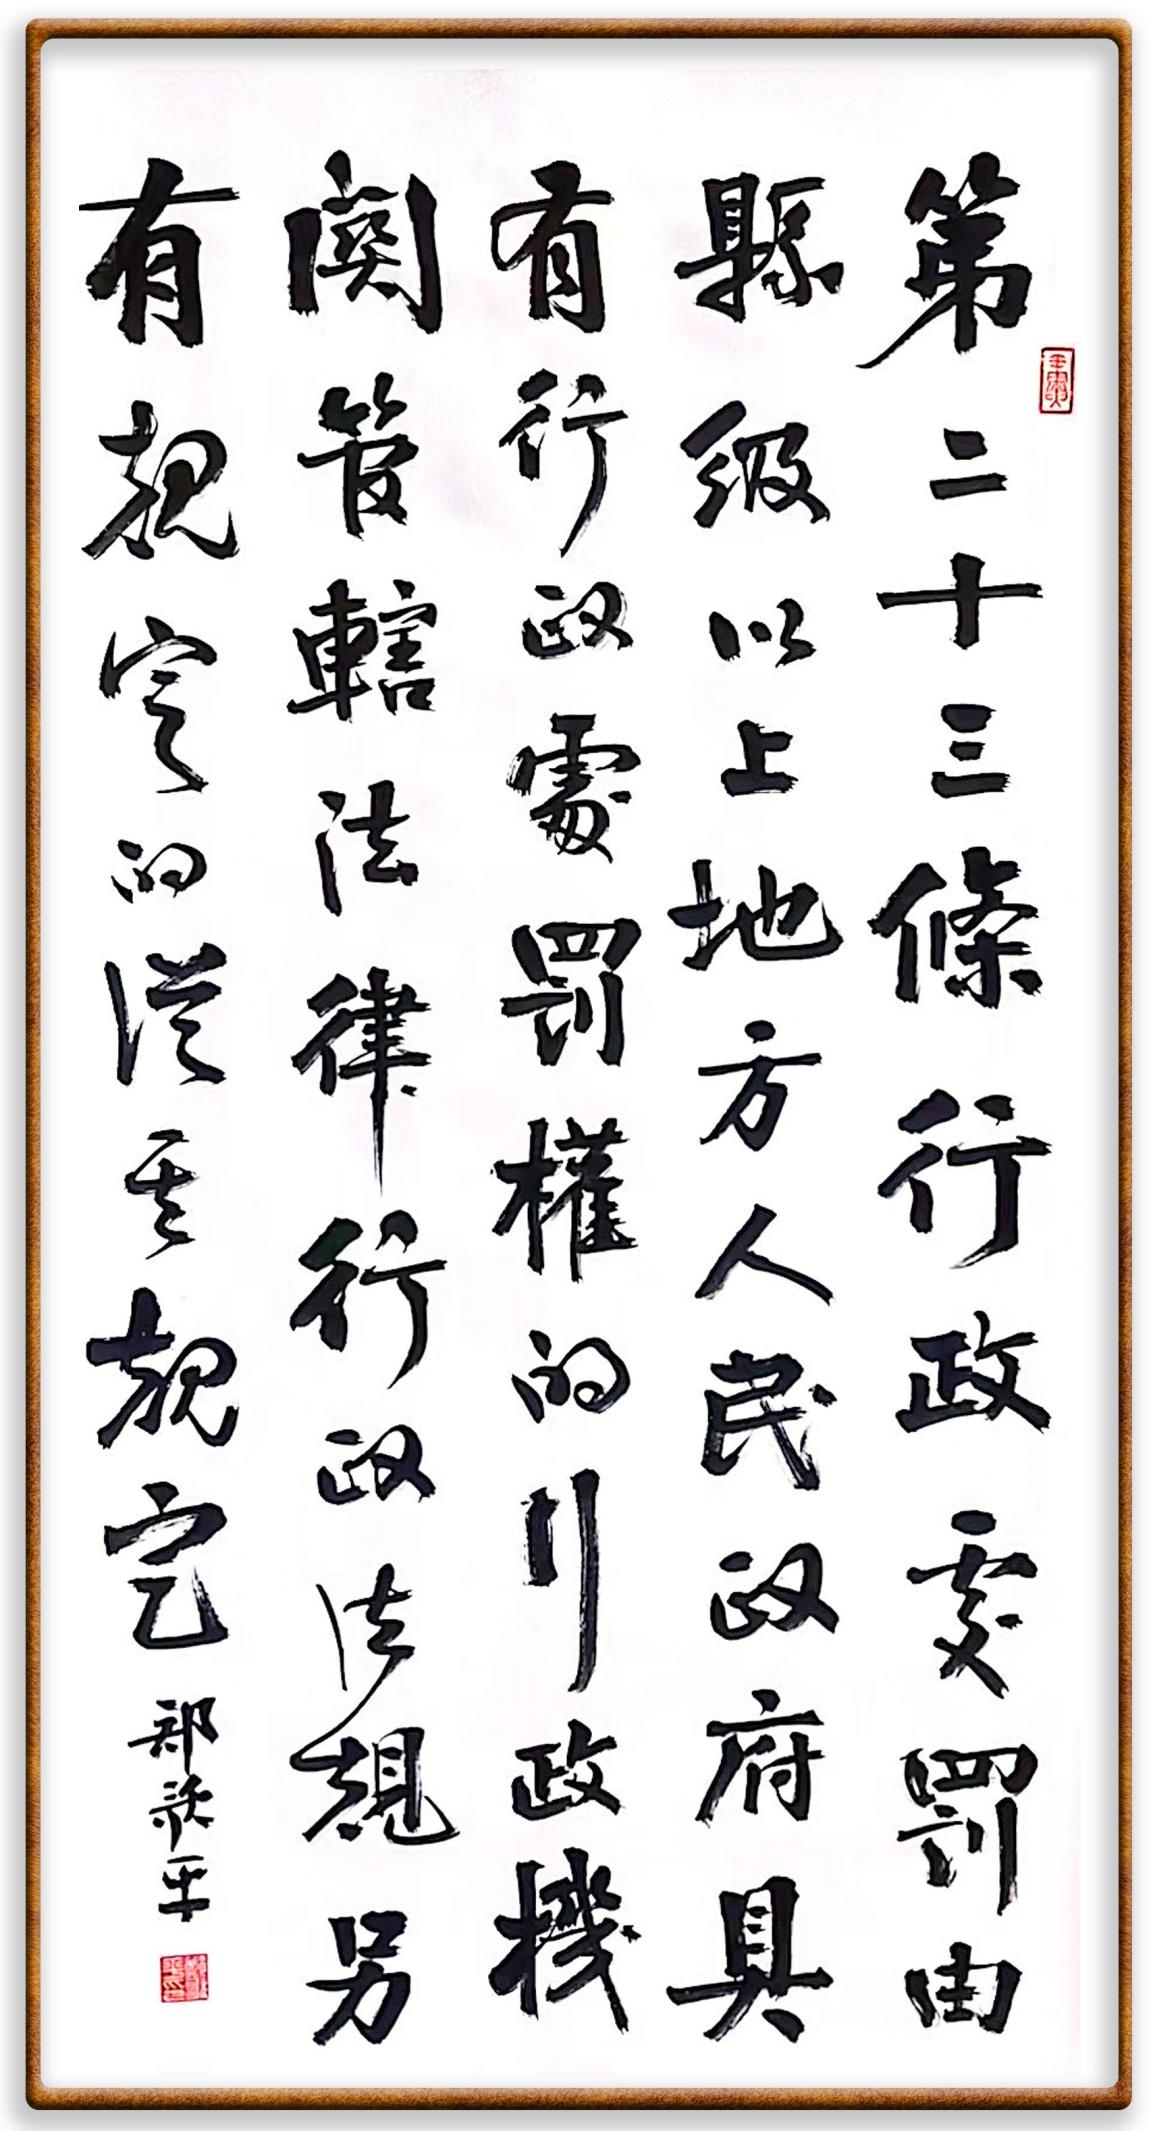 第二十三條行政處罰由
縣級以上地方人民政府具
有行政處罰權的行政機
關管轄法律行政法規另
有規定的從其規定